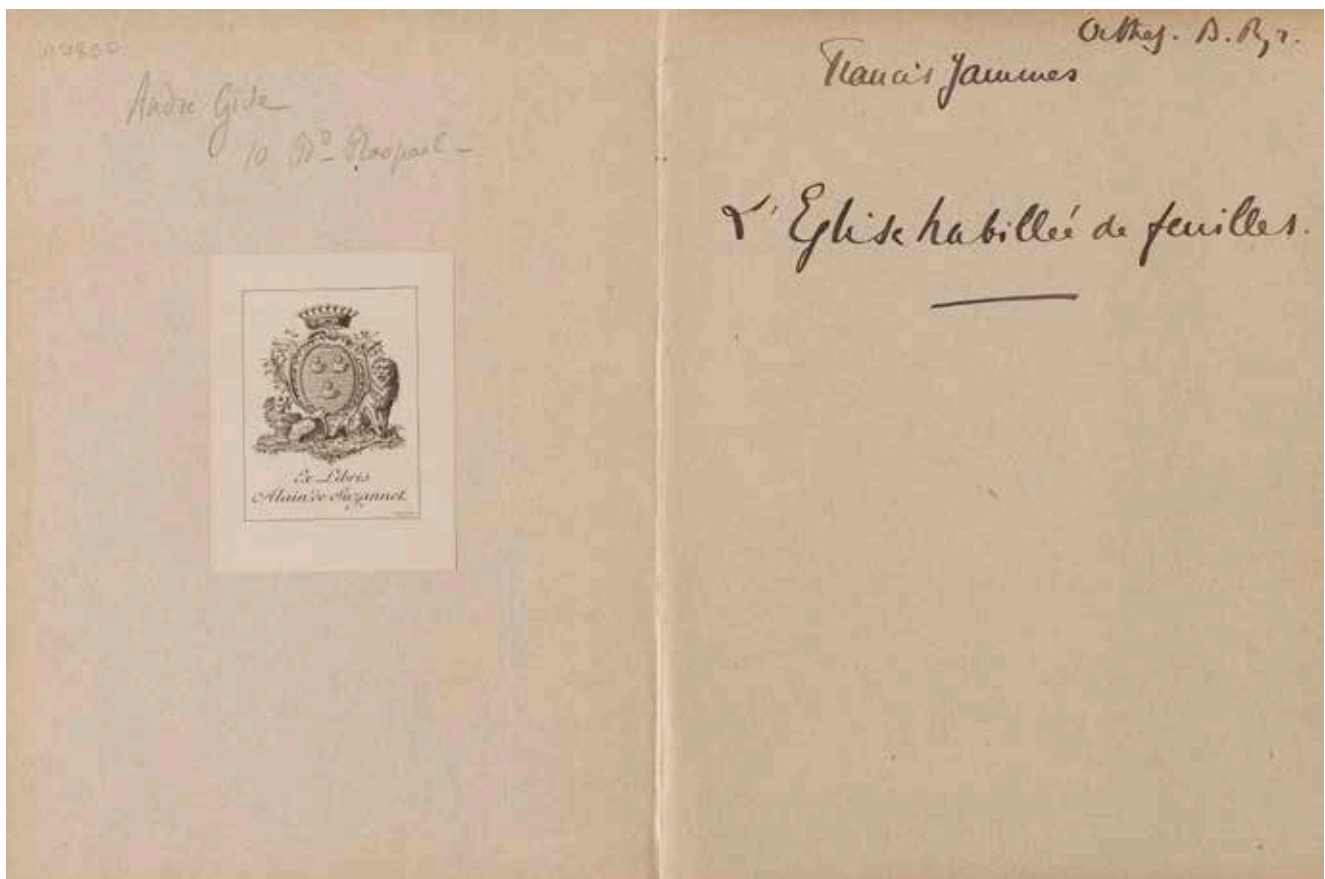 André Gide
10 Bd Raspail –
Ex Libris
Alain de Suzannet
Orthez. B. Pyr.
Francis Jammes
L'Eglise habillée de feuilles.